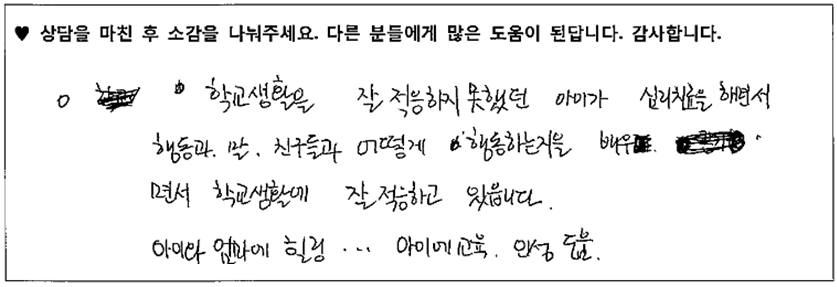 ♥ 상담을 마친 후 소감을 나눠주세요. 다른 분들에게 많은 도움이 된답니다. 감사합니다.
○ 학교생활을 잘 적응하지 못했던 아이가 심리치료을 해면서
행동과. 말. 친구들과 어떻게 행동하는지을 배우
면서 학교생활에 잘 적응하고 있읍니다.
아이와 엄마에 힐링 ... 아이에 교육. 인성 도움.